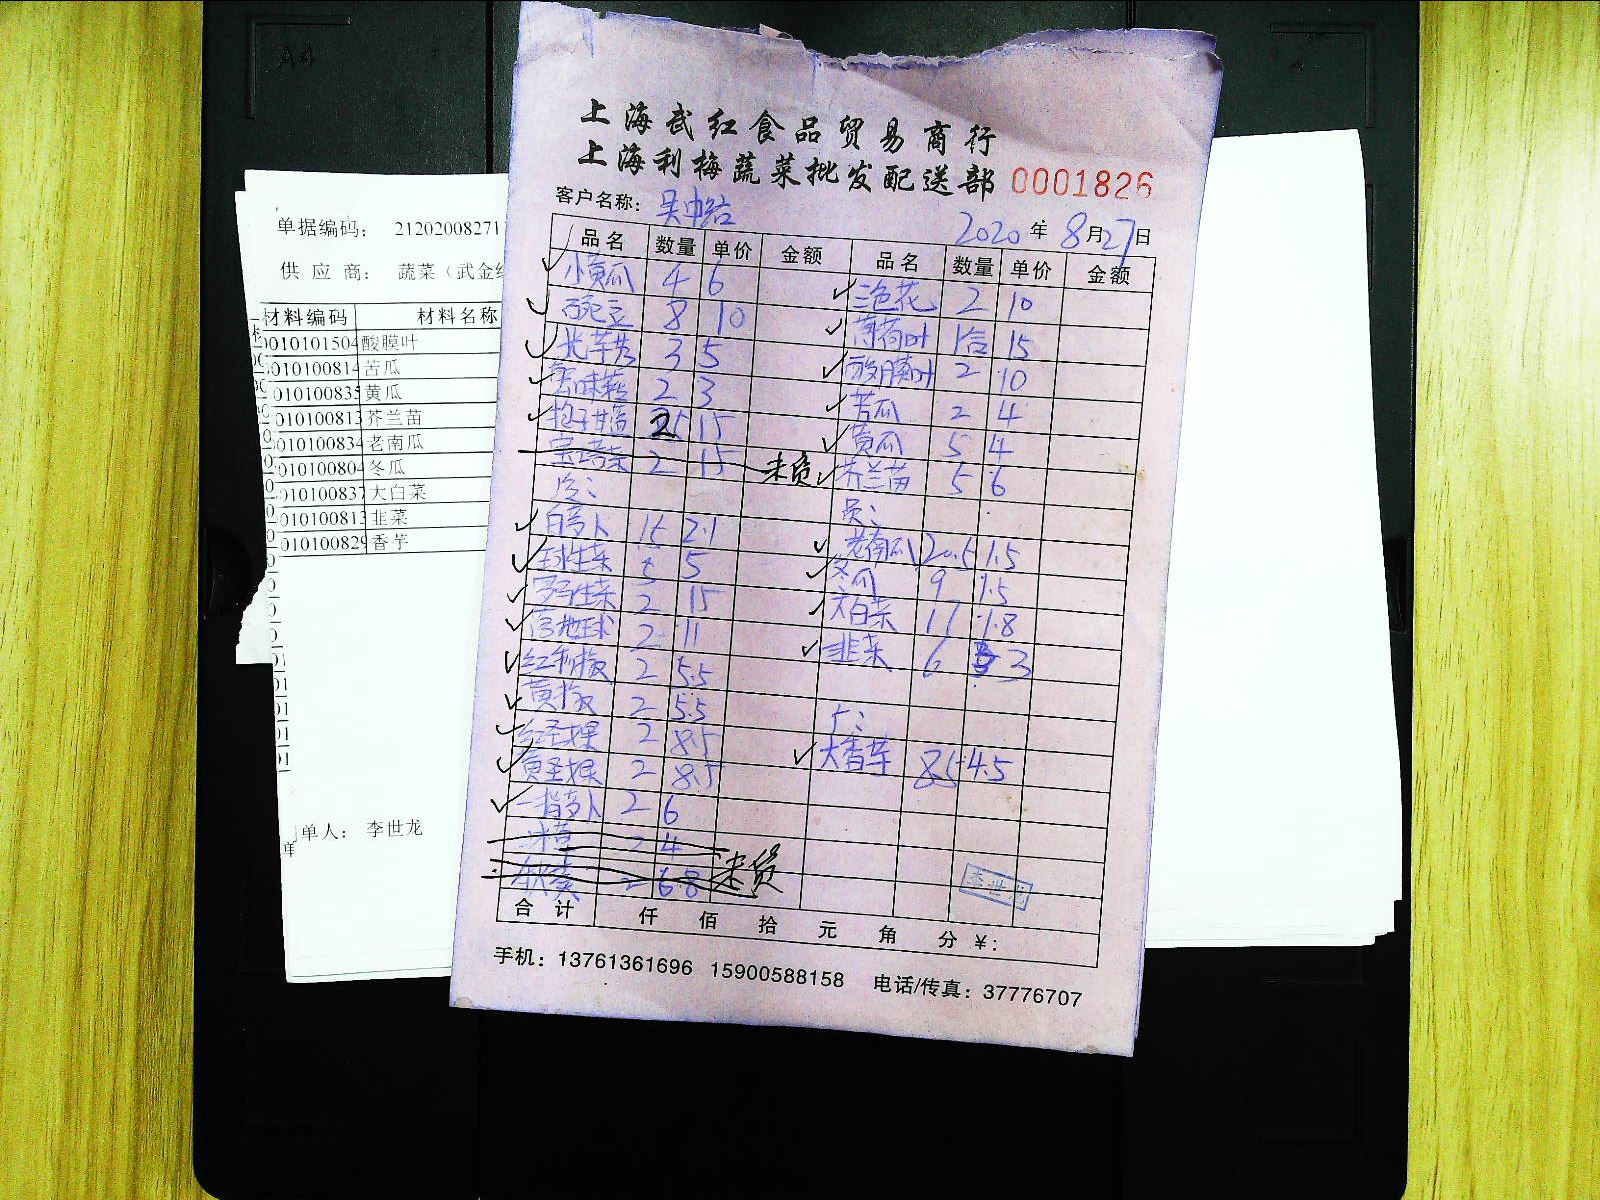 A4
上海武红食品贸易商行
上海利梅蔬菜批发配送部 0001826
客户名称:
2020年8月27日
品名 数量 单价 金额 品名 数量 单价 金额
小黄瓜 4 6 三色花 2 10
豌豆 8 10 薄荷叶 1合 15
3 5 酸膜叶 2 10
蟹味菇 2 3 苦瓜 2 4
抱子甘蓝 15 黄瓜 5 4
宝塔菜 2 15 未货 芥兰苗 5 6
白萝卜 15 2.1 老南瓜 20.5 1.5
球生菜 5 5 冬瓜 9 1.5
罗马生菜 2 15 大白菜 17 1.8
2 11 韭菜 6 3
红利椒 2 5.5
黄椒 2 5.5
红圣果 2 8.5 大香芋 85 4.5
黄圣果 2 8.5
一指萝卜 2 6
2 4
秋葵 2 6.8 未货
李世龙
合计 仟 佰 拾 元 角 分 ¥:
手机: 13761361696 15900588158 电话/传真: 37776707
单据编码: 21202008271
供应商: 蔬菜(武金
材料编码 材料名称
010101504 酸膜叶
010100814 苦瓜
010100835 黄瓜
010100813 芥兰苗
010100834 老南瓜
010100804 冬瓜
010100837 大白菜
010100813 韭菜
010100829 香芋
单人: 李世龙